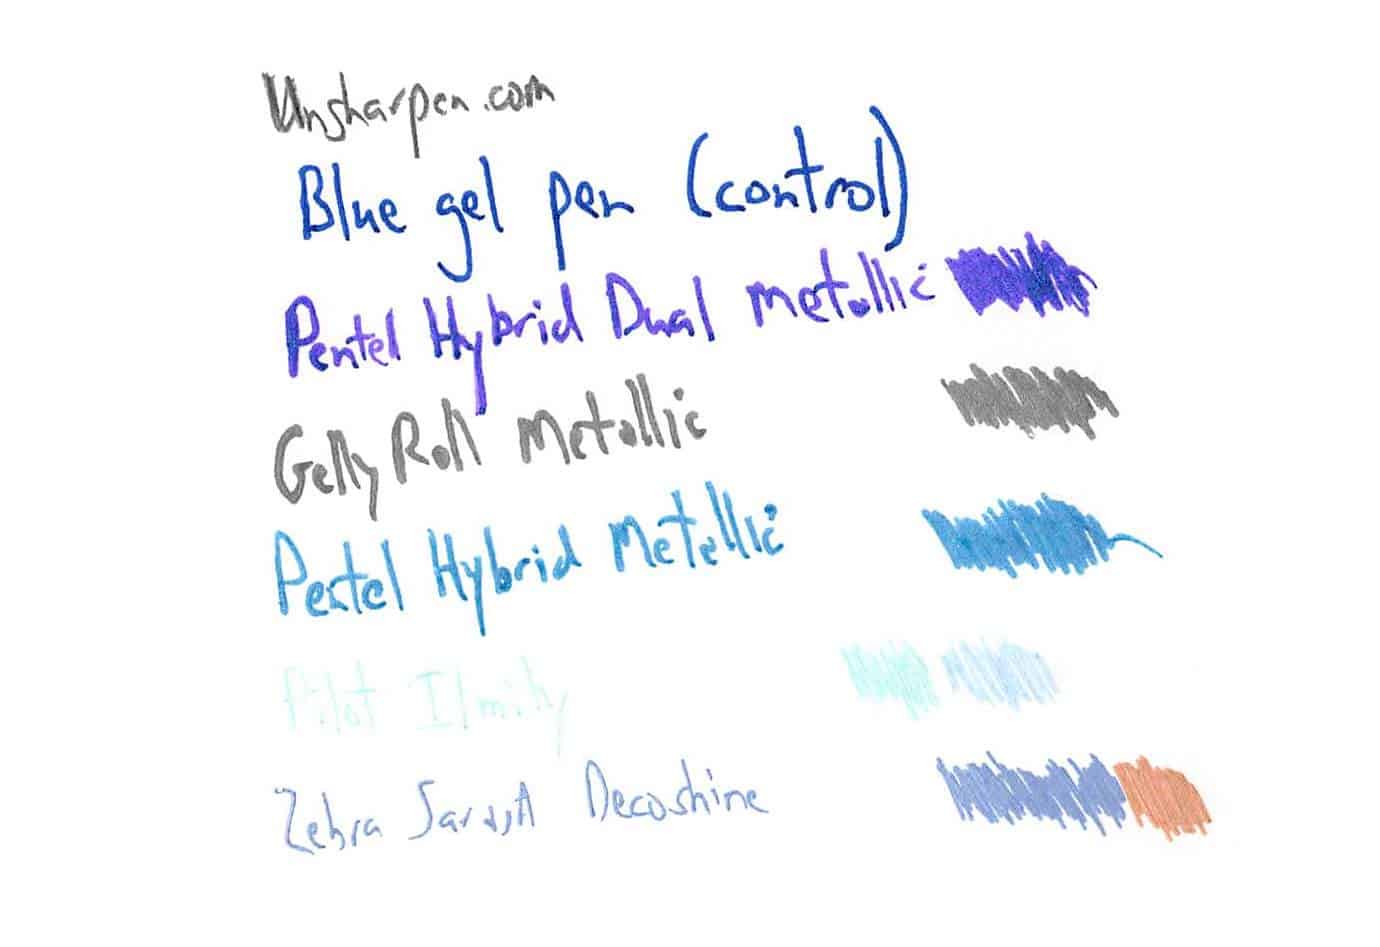 Unsharpen.com
Blue gel pen (control)
Pentel Hybrid Dual Metallic
Gelly Roll Metallic
Pentel Hybrid Metallic
Pilot Ilmily
Zebra Sarasa Decoshine